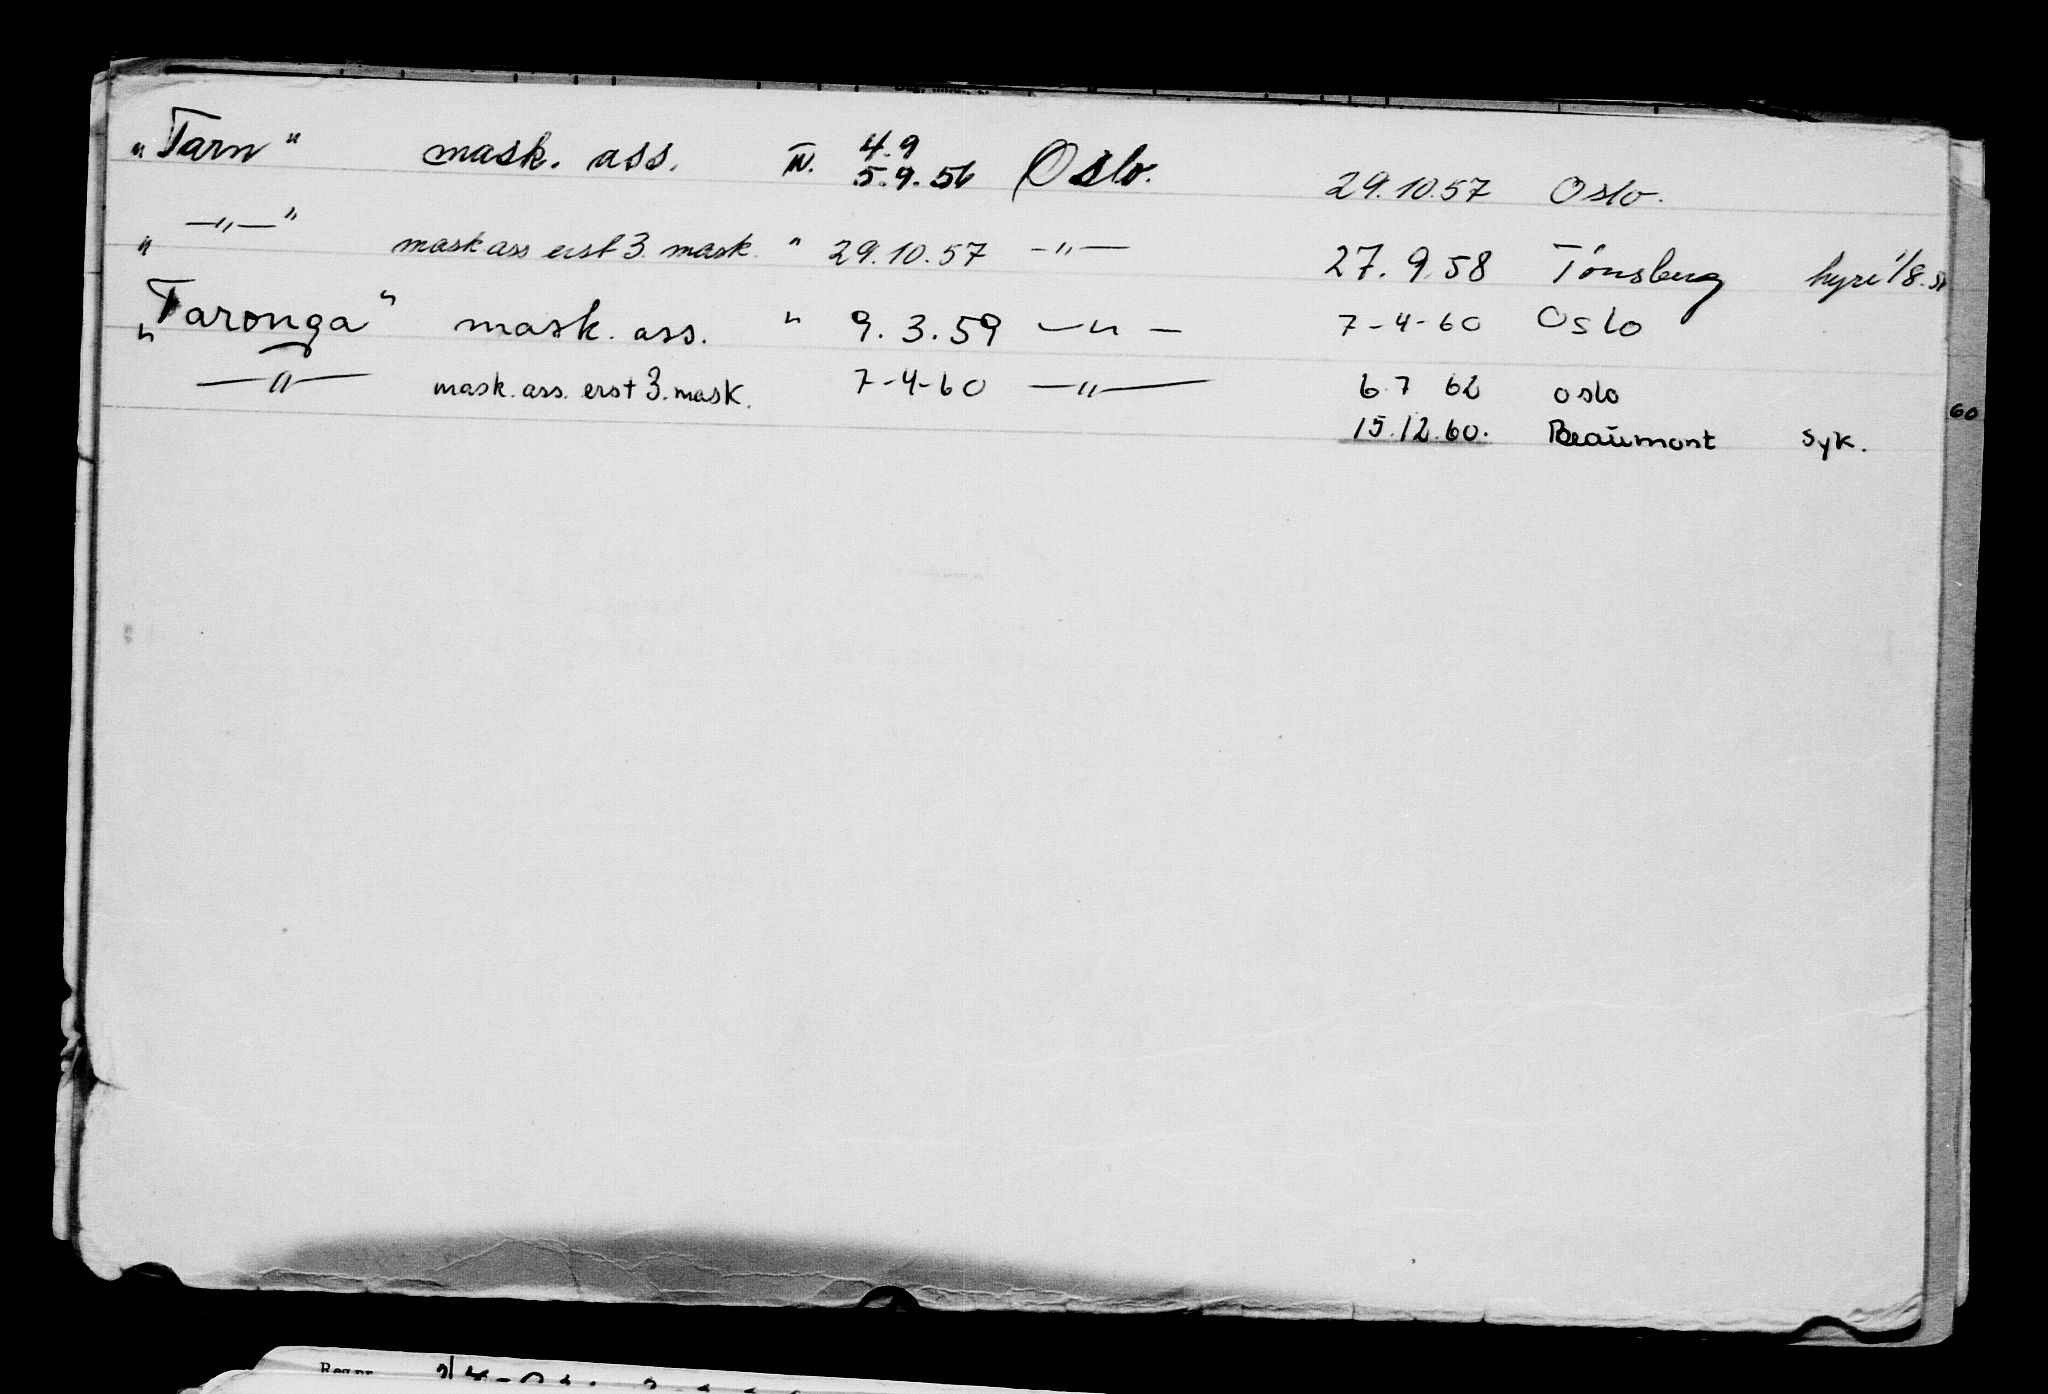 "Tarn" mask. ass. IV. 4.9 5.9.56 Oslo. 29.10.57 Oslo.
" —"— " mask ass erst 3. mask. " 29.10.57 —"— 27.9.58 Tönsberg hyre 1/8.
"Taronga" mask. ass. " 9.3.59 —"— 7-4-60 Oslo
—"— mask. ass. erst 3. mask. 7-4-60 —"— 6.7 62 oslo
15.12.60. Beaumont syk.
60